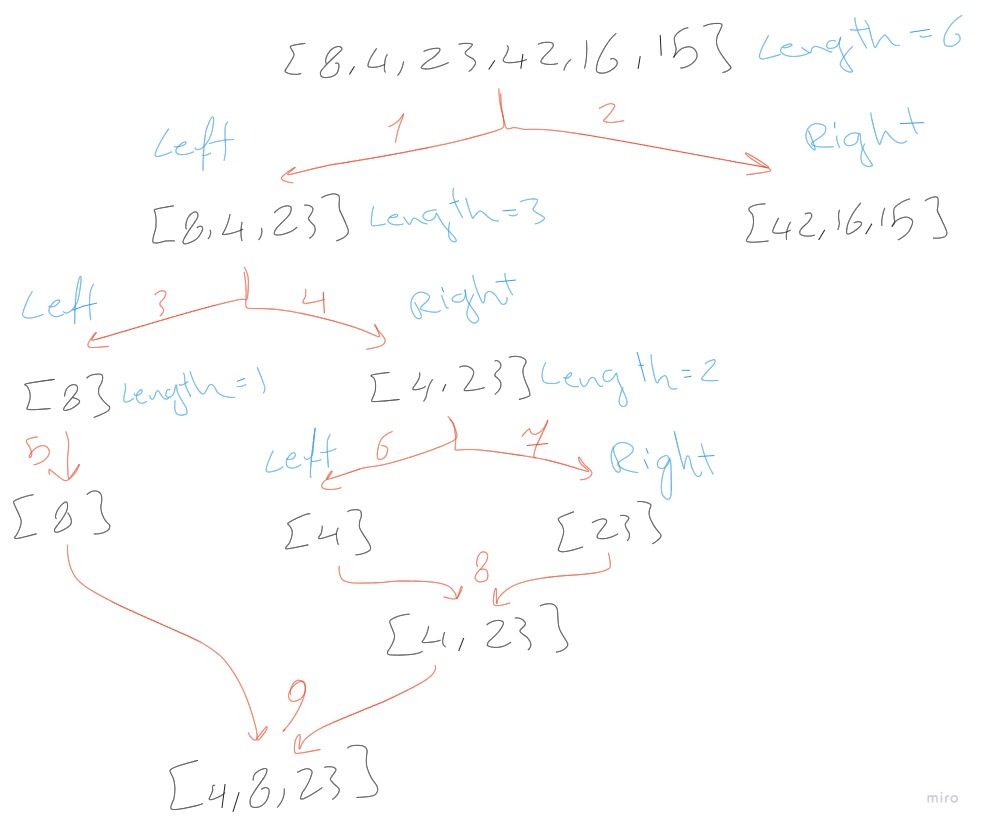 [8,4,23,42,16,15] Length=6
1 2
Left Right
[8,4,23] Length=3 [42,16,15]
Left 3 4 Right
[8] Length=1 [4,23] Length=2
5 Left 6 7 Right
[8] [4] [23]
8
[4,23]
9
[4,8,23]
miro